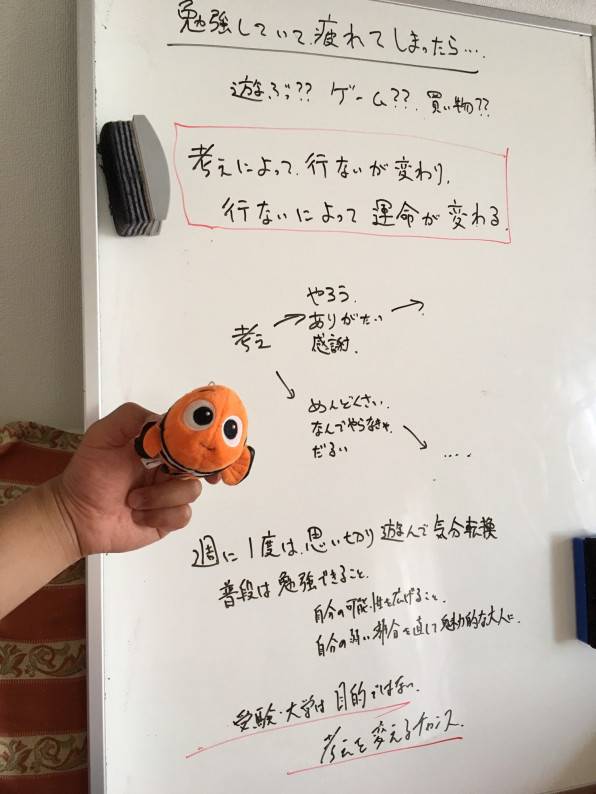 勉強していて、疲れてしまったら...
遊ぶ?? ゲーム??. 買い物??
考えによって、行ないが変わり、
行ないによって 運命が変わる.
考え
やろう.
ありがたい
感謝.
めんどくさい.
なんでやらなきゃ.
だるい
....
週に1度は、思い切り遊んで気分転換
普段は勉強できること.
自分の可能性を広げること.
自分の弱い部分を直して魅力的な大人に.
受験・大学は目的ではない.
考えを変えるチャンス.